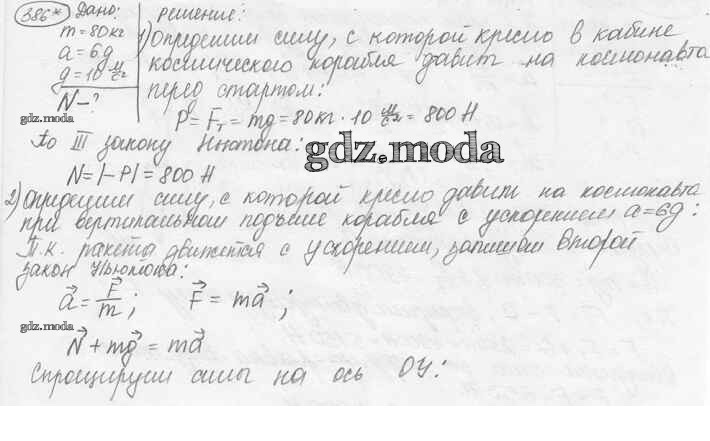 386* Дано: Решение:
m = 80 кг 1) Определим силу, с которой кресло в кабине
a = 6g космического корабля давит на космонавта
g = 10 м/с² перед стартом:
N - ?
P = Fт = mg = 80 кг · 10 м/с² = 800 Н
gdz.moda
По III закону Ньютона:
gdz.moda
N = |-P| = 800 Н
2) Определим силу, с которой кресло давит на космонавта
при вертикальном подъеме корабля с ускорением a = 6g :
Т.к. ракета движется с ускорением, запишем второй
закон Ньютона:
a⃗ = F⃗/m ; F⃗ = ma⃗ ;
gdz.moda
N⃗ + mg⃗ = ma⃗
Спроецируем силы на ось OY: